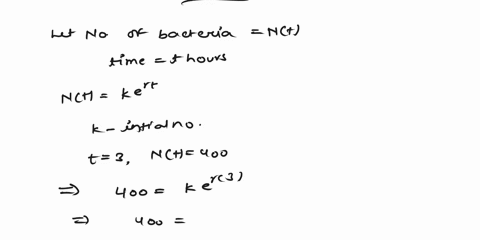 Let No of bacteria = N(t)
time = t hours
N(t) = k e^{rt}
k - intial no.
t = 3, N(t) = 400
⇒ 400 = k e^{r(3)}
⇒ 400 =